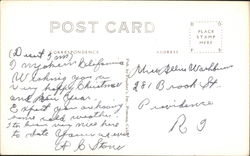 POST CARD
CORRESPONDENCE
ADDRESS
PLACE
STAMP
HERE
(Desert Inn)
California
Wishing you a
Very happy Christmas
and New Year.
Expect you are having
some cold weather.
It has been very nice here
to date
H C Stone
Miss Washburn
281 Brook St
Providence
R I